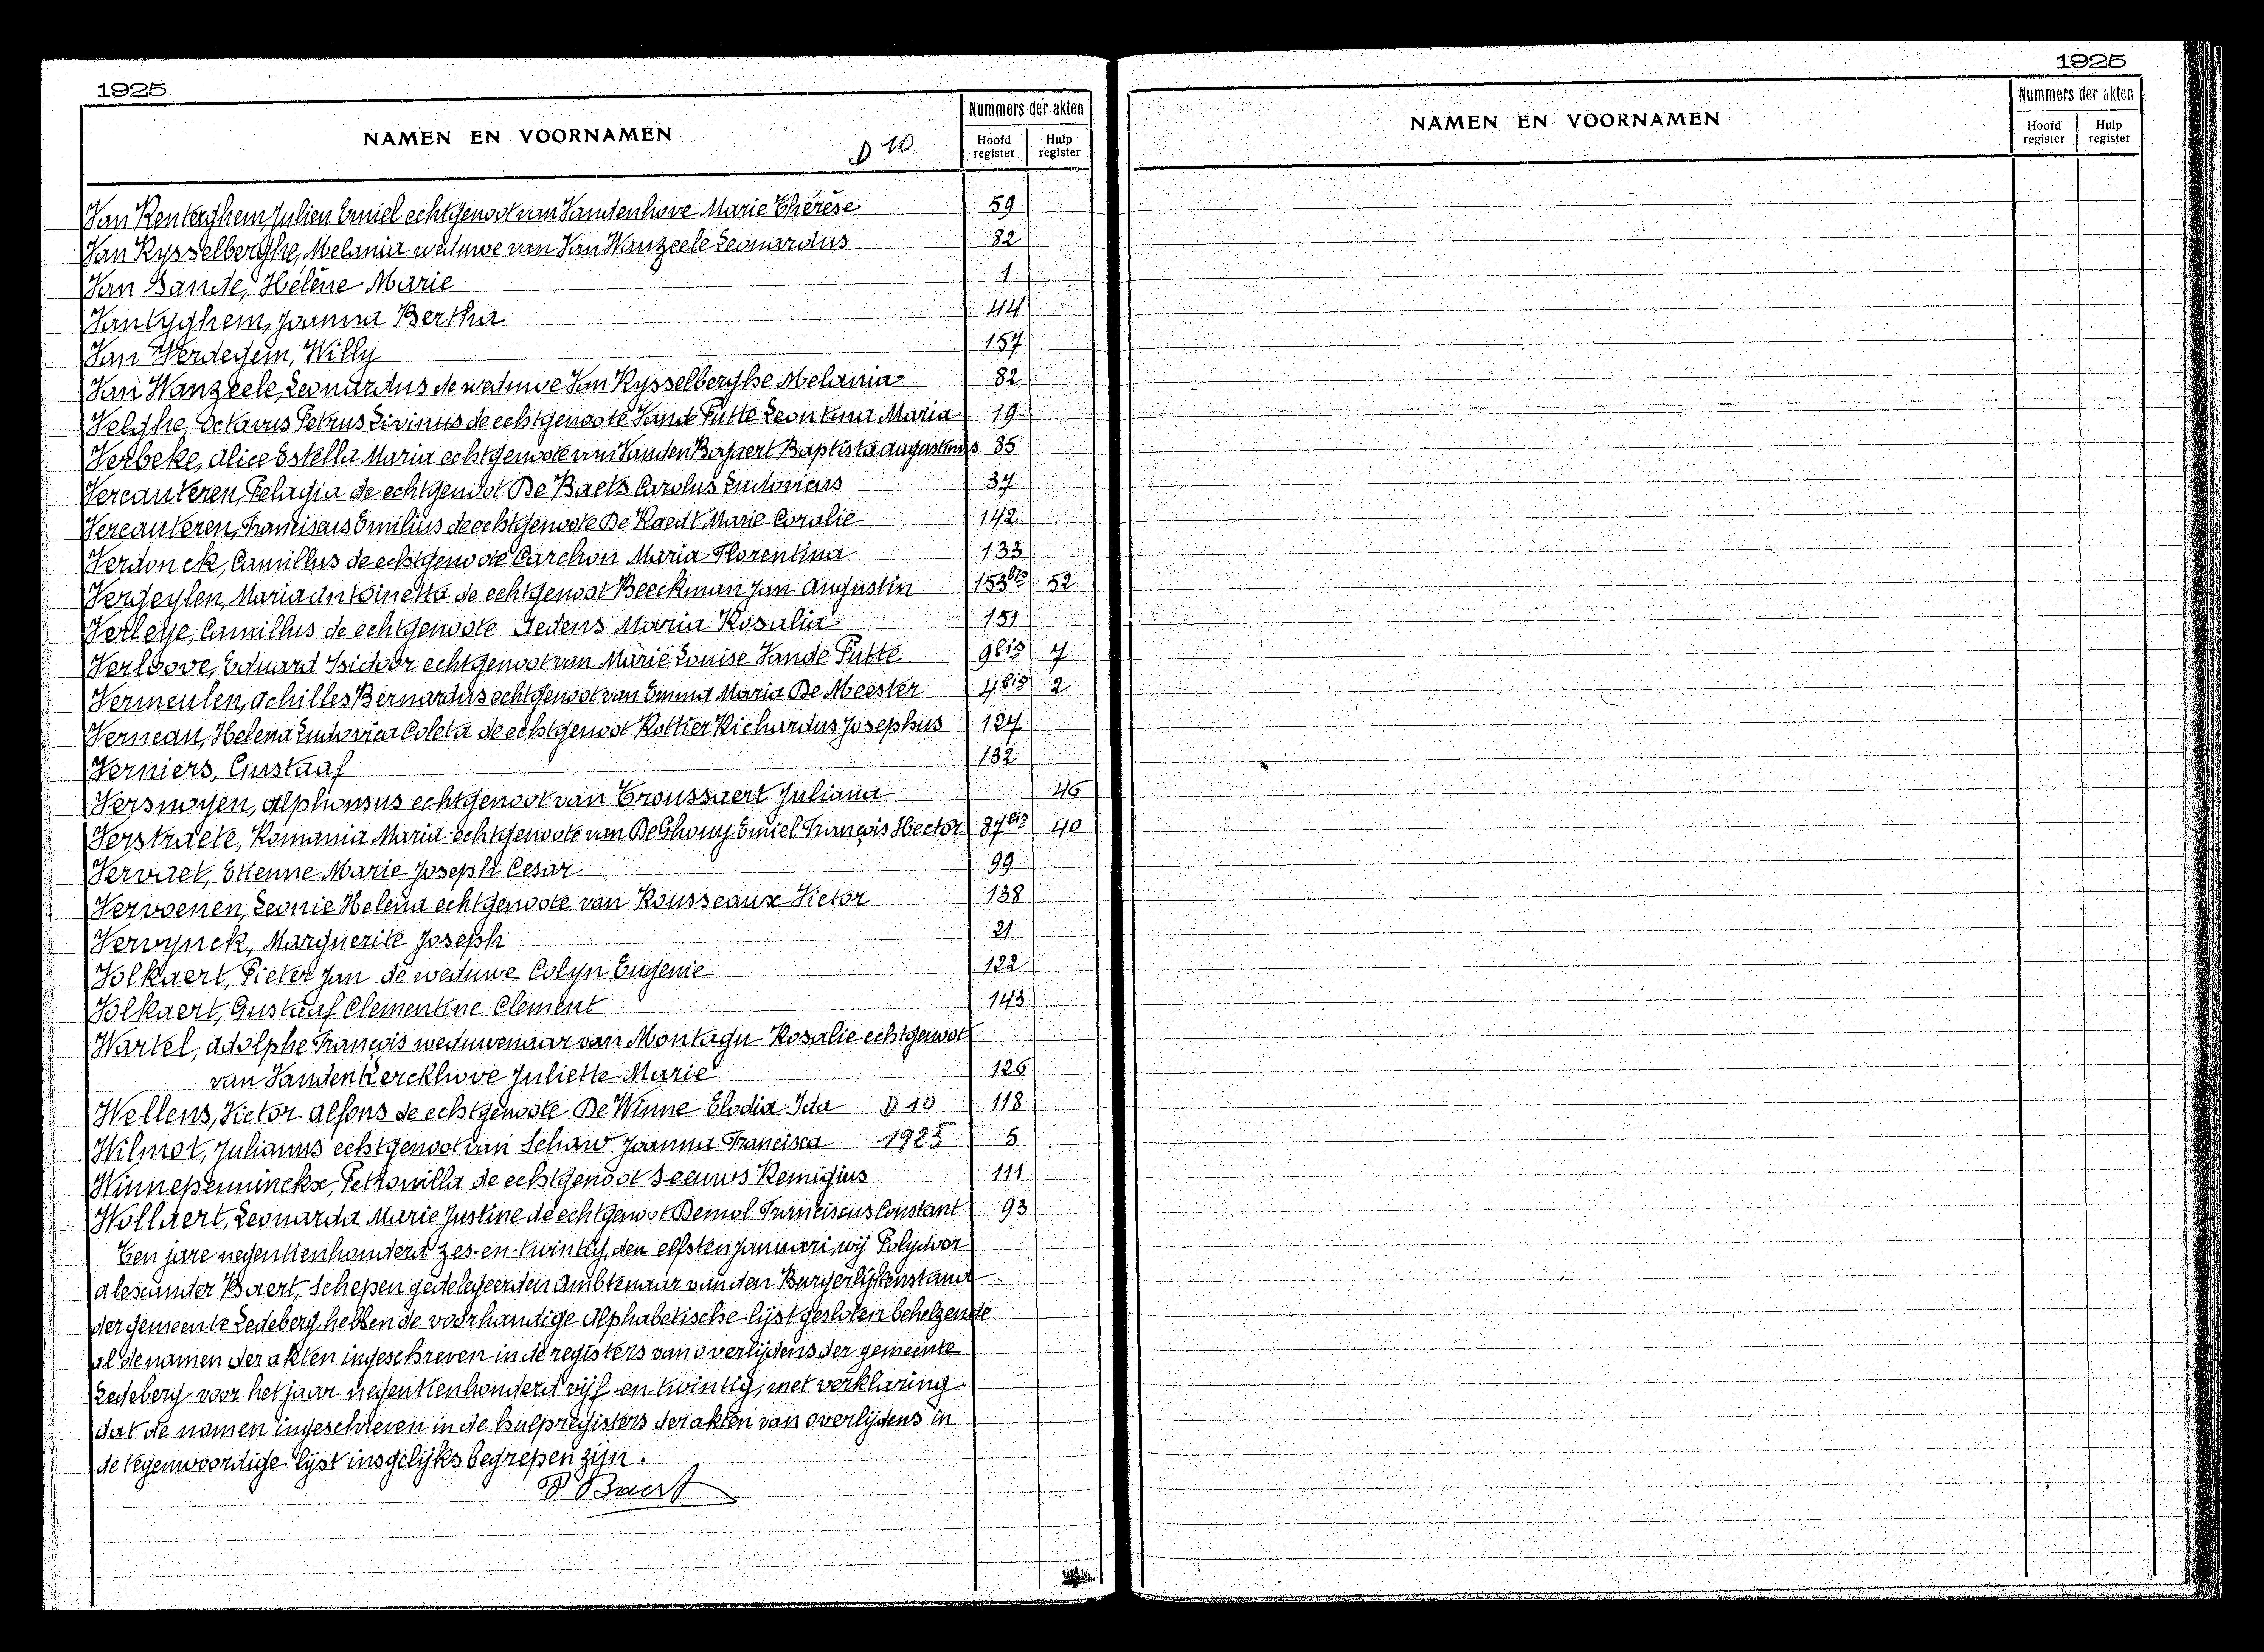 1925
NAMEN EN VOORNAMEN
D 10
Nummers der akten
Hoofd register
Hulp register
Van Renterghem, Julien Emiel echtgenoot van Vandenhove Marie Thérèse 59
Van Rysselberghe, Melania weduwe van Van Wanzeele Leonardus 82
Van Sande, Hélène Marie 1
Vantyghem, Joanna Bertha 44
Van Verdegem, Willy 157
Van Wanzeele, Leonardus de weduwe Van Rysselberghe Melania 82
Velghe, Octavus Petrus Livinus de echtgenoote Vande Putte Leontina Maria 19
Verbeke, Alice Estella Maria echtgenoote van Vanden Bogaert Baptista Augustinus 85
Vercauteren, Pelagia de echtgenoot De Baets Carolus Ludovicus 37
Vercauteren, Franciscus Emilius de echtgenoote De Raedt Marie Coralie 142
Verdonck, Camillus de echtgenoote Carchon Maria Florentina 133
Vergeylen, Maria Antoinetta de echtgenoot Beeckman Jan Augustin 153bis 52
Verleye, Camillus de echtgenoote Gedens Maria Rosalia 151
Verloove, Eduard Isidoor echtgenoot van Marie Louise Vande Putte 9bis 7
Vermeulen, Achilles Bernardus echtgenoot van Emma Maria De Meester 4bis 2
Verneau, Helena Ludovica Coleta de echtgenoot Rottier Richardus Josephus 124
Verniers, Gustaaf 132
Versmoyen, Alphonsus echtgenoot van Troussaert Juliana 46
Verstraete, Romania Maria echtgenoote van De Ghouy Emiel François Hector 87bis 40
Vervaet, Etienne Marie Joseph Cesar 99
Vervoenen, Leonie Helena echtgenoote van Rousseaux Victor 138
Vervynck, Marguerite Joseph 21
Volkaert, Pieter Jan de weduwe Colyn Eugenie 122
Volkaert, Gustaaf Clementine Clement 143
Wartel, Adolphe François weduwenaar van Montagu Rosalie echtgenoot
van Vanden Kerckhove Juliette Marie 126
Wellens, Victor Alfons de echtgenoote De Winne Elodia Ida D 10 118
Wilmot, Julianus echtgenoot van Schaw Joanna Francisca 1925 5
Winnepenninckx, Petronilla de echtgenoot Seeuws Remigius 111
Wollaert, Leonarda Marie Justine de echtgenoot Demol Franciscus Constant 93
Ten jare negentienhonderd zes-en-twintig, den elfsten Januari, wij Polydoor
Alexander Baert, Schepen gedelegeerden Ambtenaar van den Burgerlijkenstand
der gemeente Ledeberg hebben de voorhandige Alphabetische lijst gesloten behelzende
al de namen der akten ingeschreven in de registers van overlijdens der gemeente
Ledeberg voor het jaar negentienhonderd vijf en twintig, met verklaring
dat de namen ingeschreven in de hulpregisters der akten van overlijdens in
de tegenwoordige lijst insgelijks begrepen zijn.
P Baert
1925
NAMEN EN VOORNAMEN
Nummers der akten
Hoofd register
Hulp register